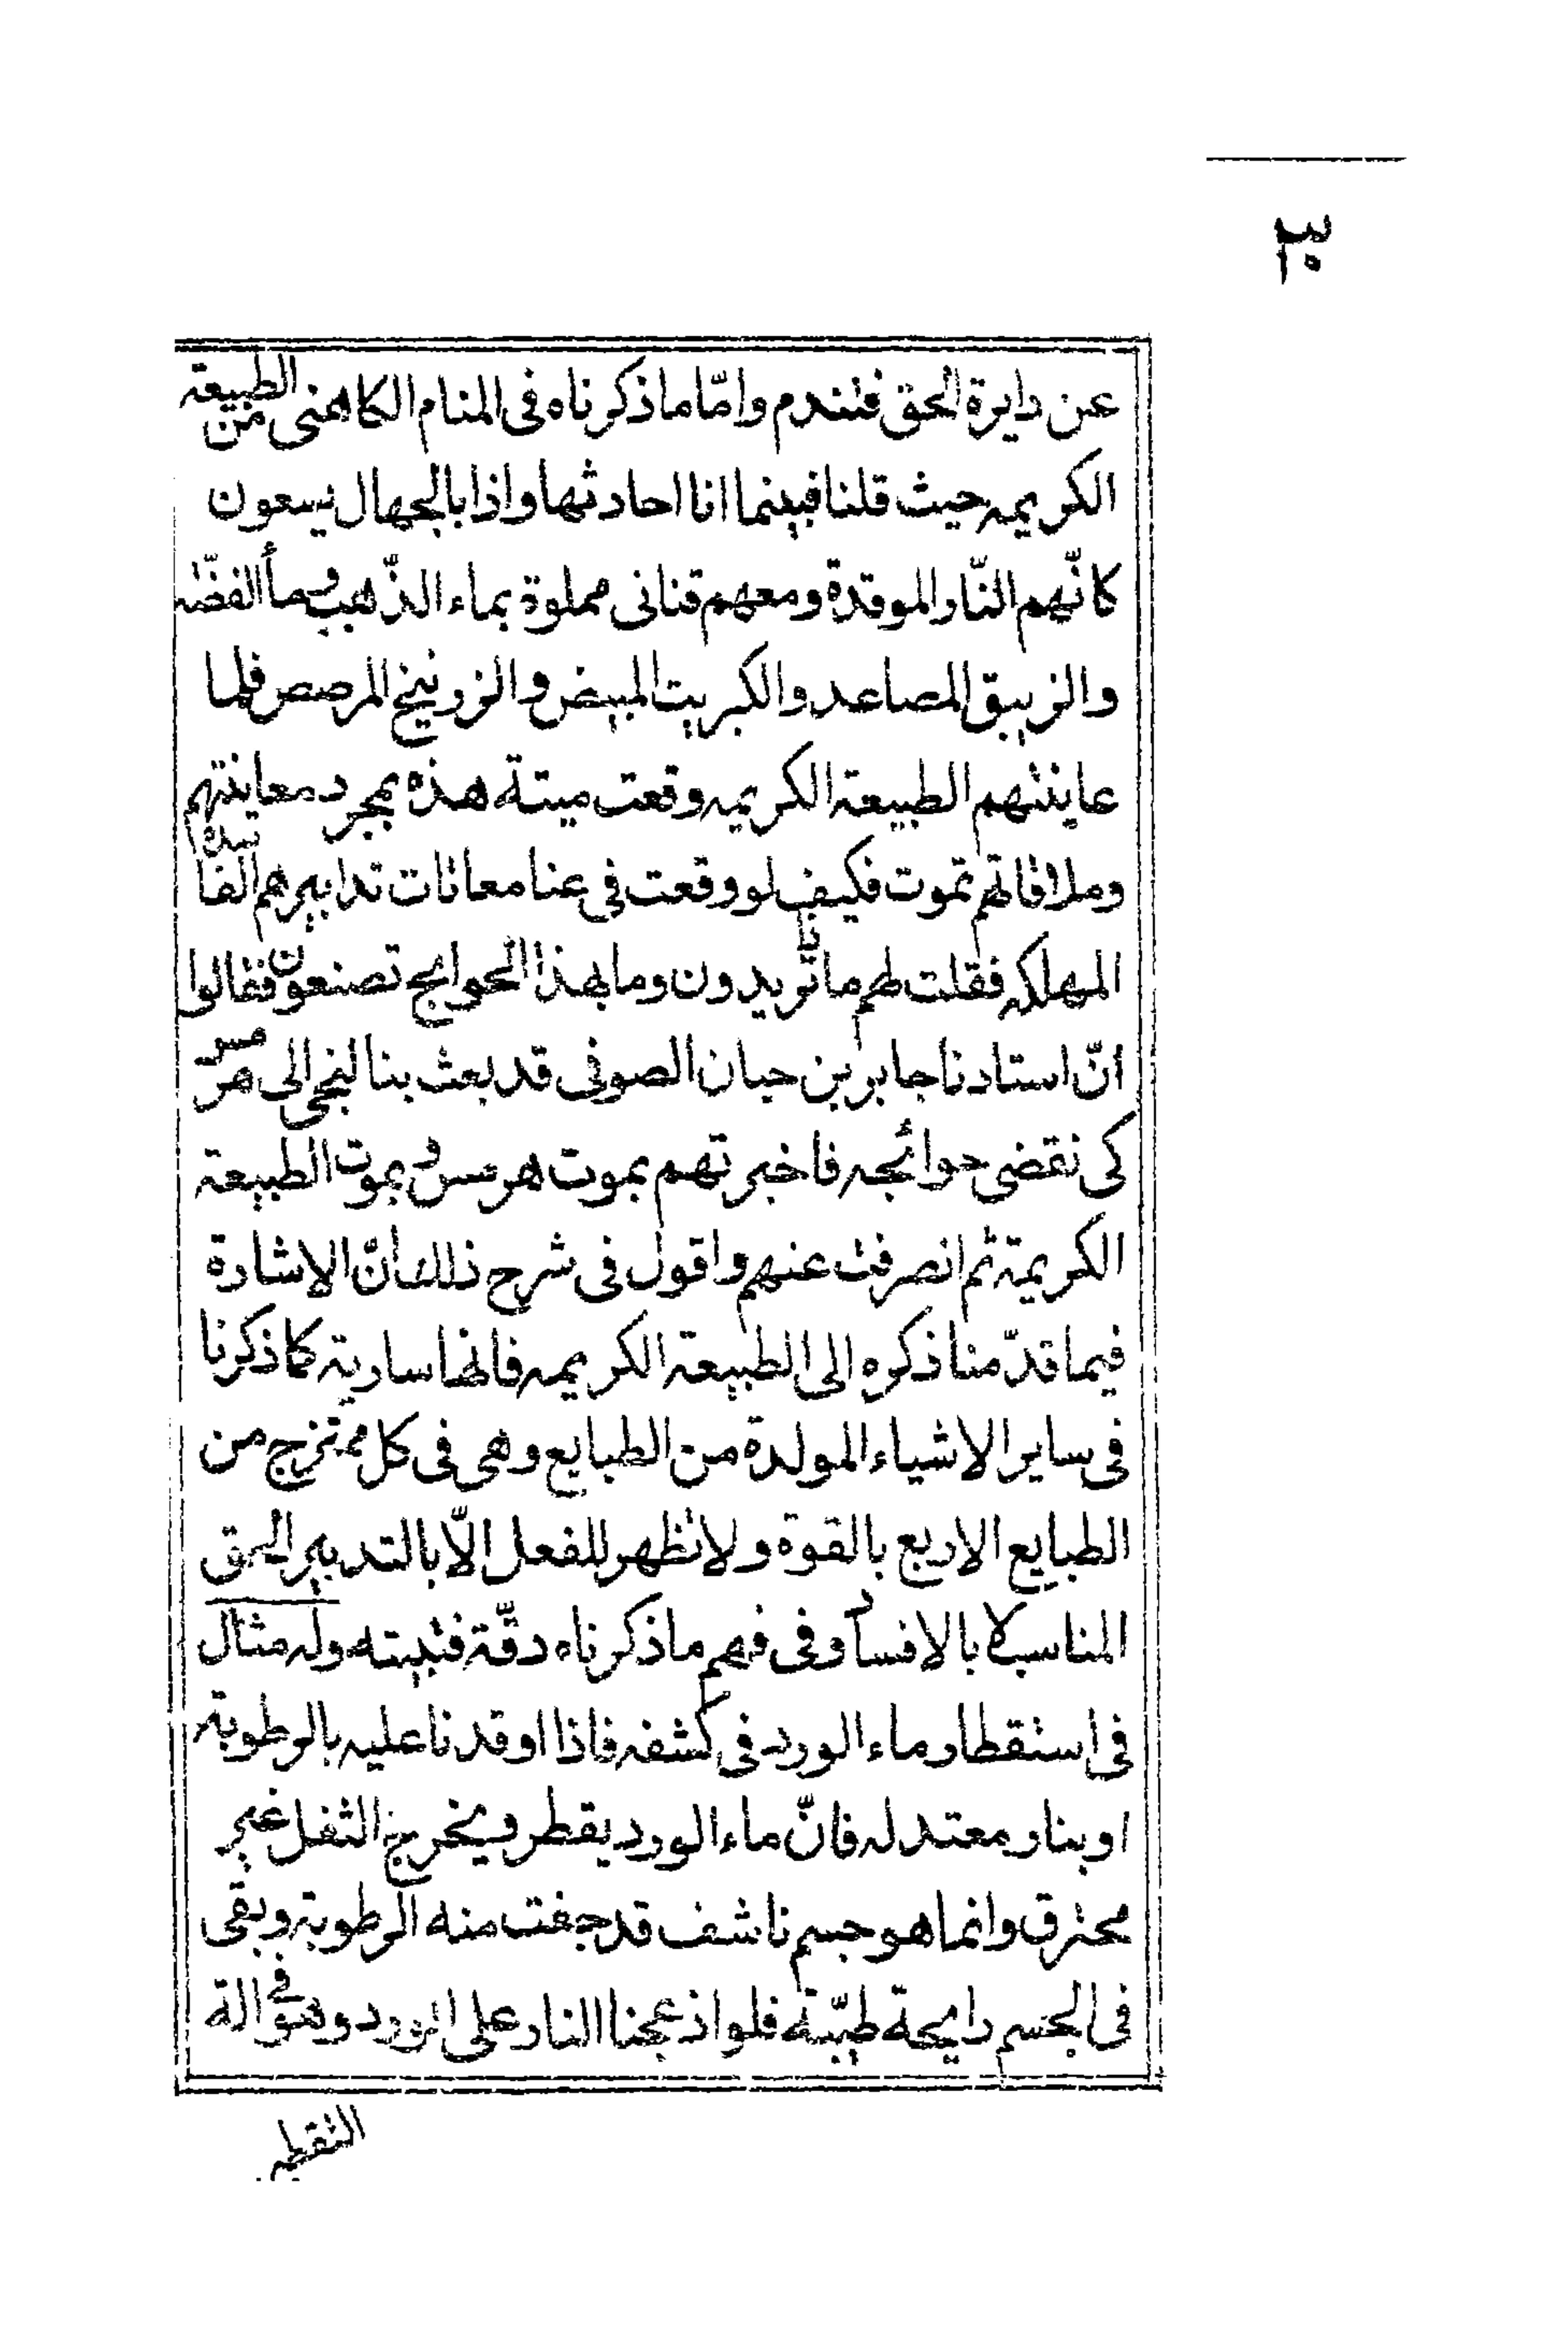 عن دايرة الحق فتندم وامّا ما ذكرناه فى المنام الكاهنى من الطبيعة
الكريمه حيث قلنا فبينما انا احادثها واذا بالجهال يسعون
كانّهم النّار الموقدة ومعهم قنانى مملوة بماء الذّهب وماء الفضّه
والزيبق المصاعد والكبريت المبيض والزرنيخ المرصص فلما
عاينتهم الطبيعة الكريمه وقعت ميتة هذه بمجرد معاينتهم
وملاقاتهم تموت فكيف لو وقعت فى عنا معانات تدابيرهم الفاسدة
المهلكه فقلت لهم ما تريدون وما بهذا الحوايج تصنعون فقالوا
انّ استادنا جابر بن حيان الصوفى قد بعث بنا لنجى الى هرمس
كى نقضى حوائجه فاخبرتهم بموت هرمس وبموت الطبيعة
الكريمة ثم انصرفت عنهم واقول فى شرح ذلك انّ الاشارة
فيما قدّمنا ذكره الى الطبيعة الكريمه فانها سارية كما ذكرنا
فى ساير الاشياء المولدة من الطبايع وهى فى كل ممتزج من
الطبايع الاربع بالقوة ولا تظهر للفعل الّا بالتدبير الحق
المناسب لا بالافساد وفى فهم ما ذكرناه دقّة فتبيته وله مثال
فى استقطار ماء الورد فى كشفه فاذا اوقدنا عليه بالرطوبة
او بنار معتدله فانّ ماء الورد يقطر ويخرج الثفل غير
محترق وانما هو جسم ناشف قد جفت منه الرطوبة وبقى
فى الجسم رايحة طيّبة فلو اذعجنا النار على الورد وهو فى الة
التقطير